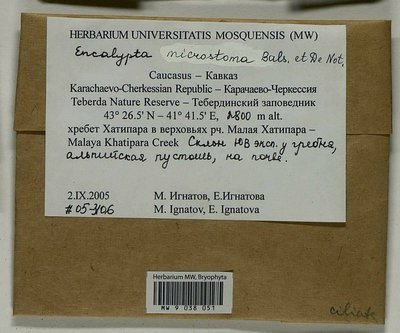 HERBARIUM UNIVERSITATIS MOSQUENSIS (MW)
Encalypta microstoma Bals. et De Not.
Caucasus – Кавказ
Karachaevo-Cherkessian Republic – Карачаево-Черкессия
Teberda Nature Reserve – Тебердинский заповедник
43° 26.5' N – 41° 41.5' E, 2800 m alt.
хребет Хатипара в верховьях рч. Малая Хатипара –
Malaya Khatipara Creek Склон ЮВ эксп. у гребня,
альпийская пустошь, на почве.
2.IX.2005 М. Игнатов, Е.Игнатова
#05-3106 M. Ignatov, E. Ignatova
Herbarium MW, Bryophyta
MW 9 038 051
ciliata